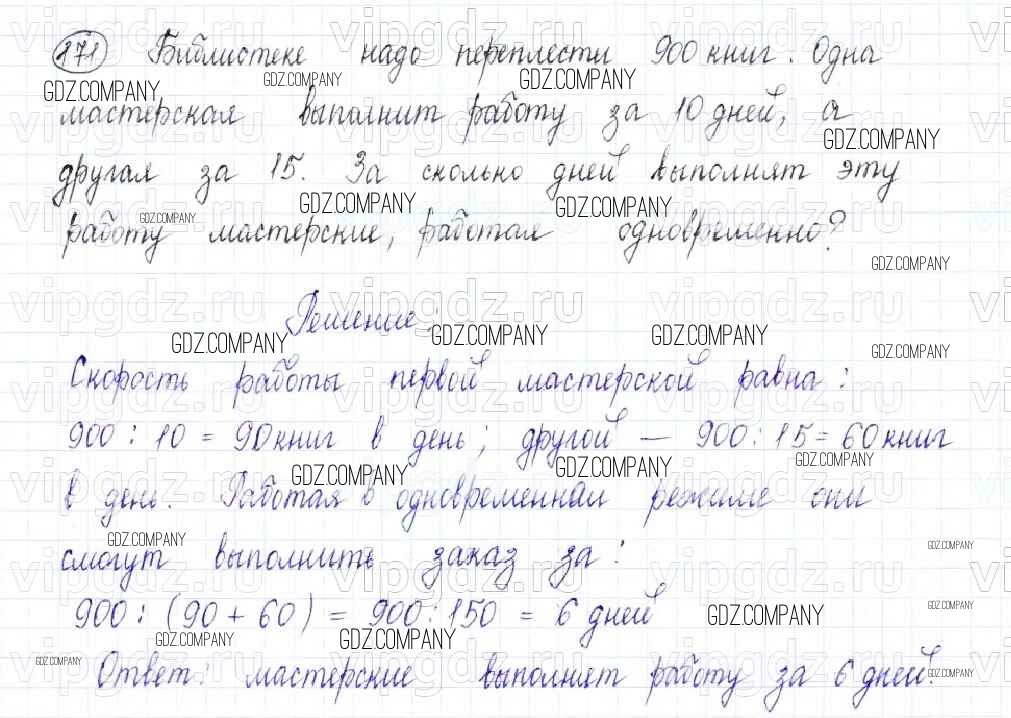 171 Библиотеке надо переплести 900 книг. Одна
мастерская выполнит работу за 10 дней, а
другая за 15. За сколько дней выполнят эту
работу мастерские, работая одновременно?
Решение:
Скорость работы первой мастерской равна:
900 : 10 = 90 книг в день; другой — 900 : 15 = 60 книг
в день. Работая в одновременном режиме они
смогут выполнить заказ за:
900 : (90 + 60) = 900 : 150 = 6 дней
Ответ: мастерские выполнят работу за 6 дней.
GDZ.COMPANY
vipgdz.ru